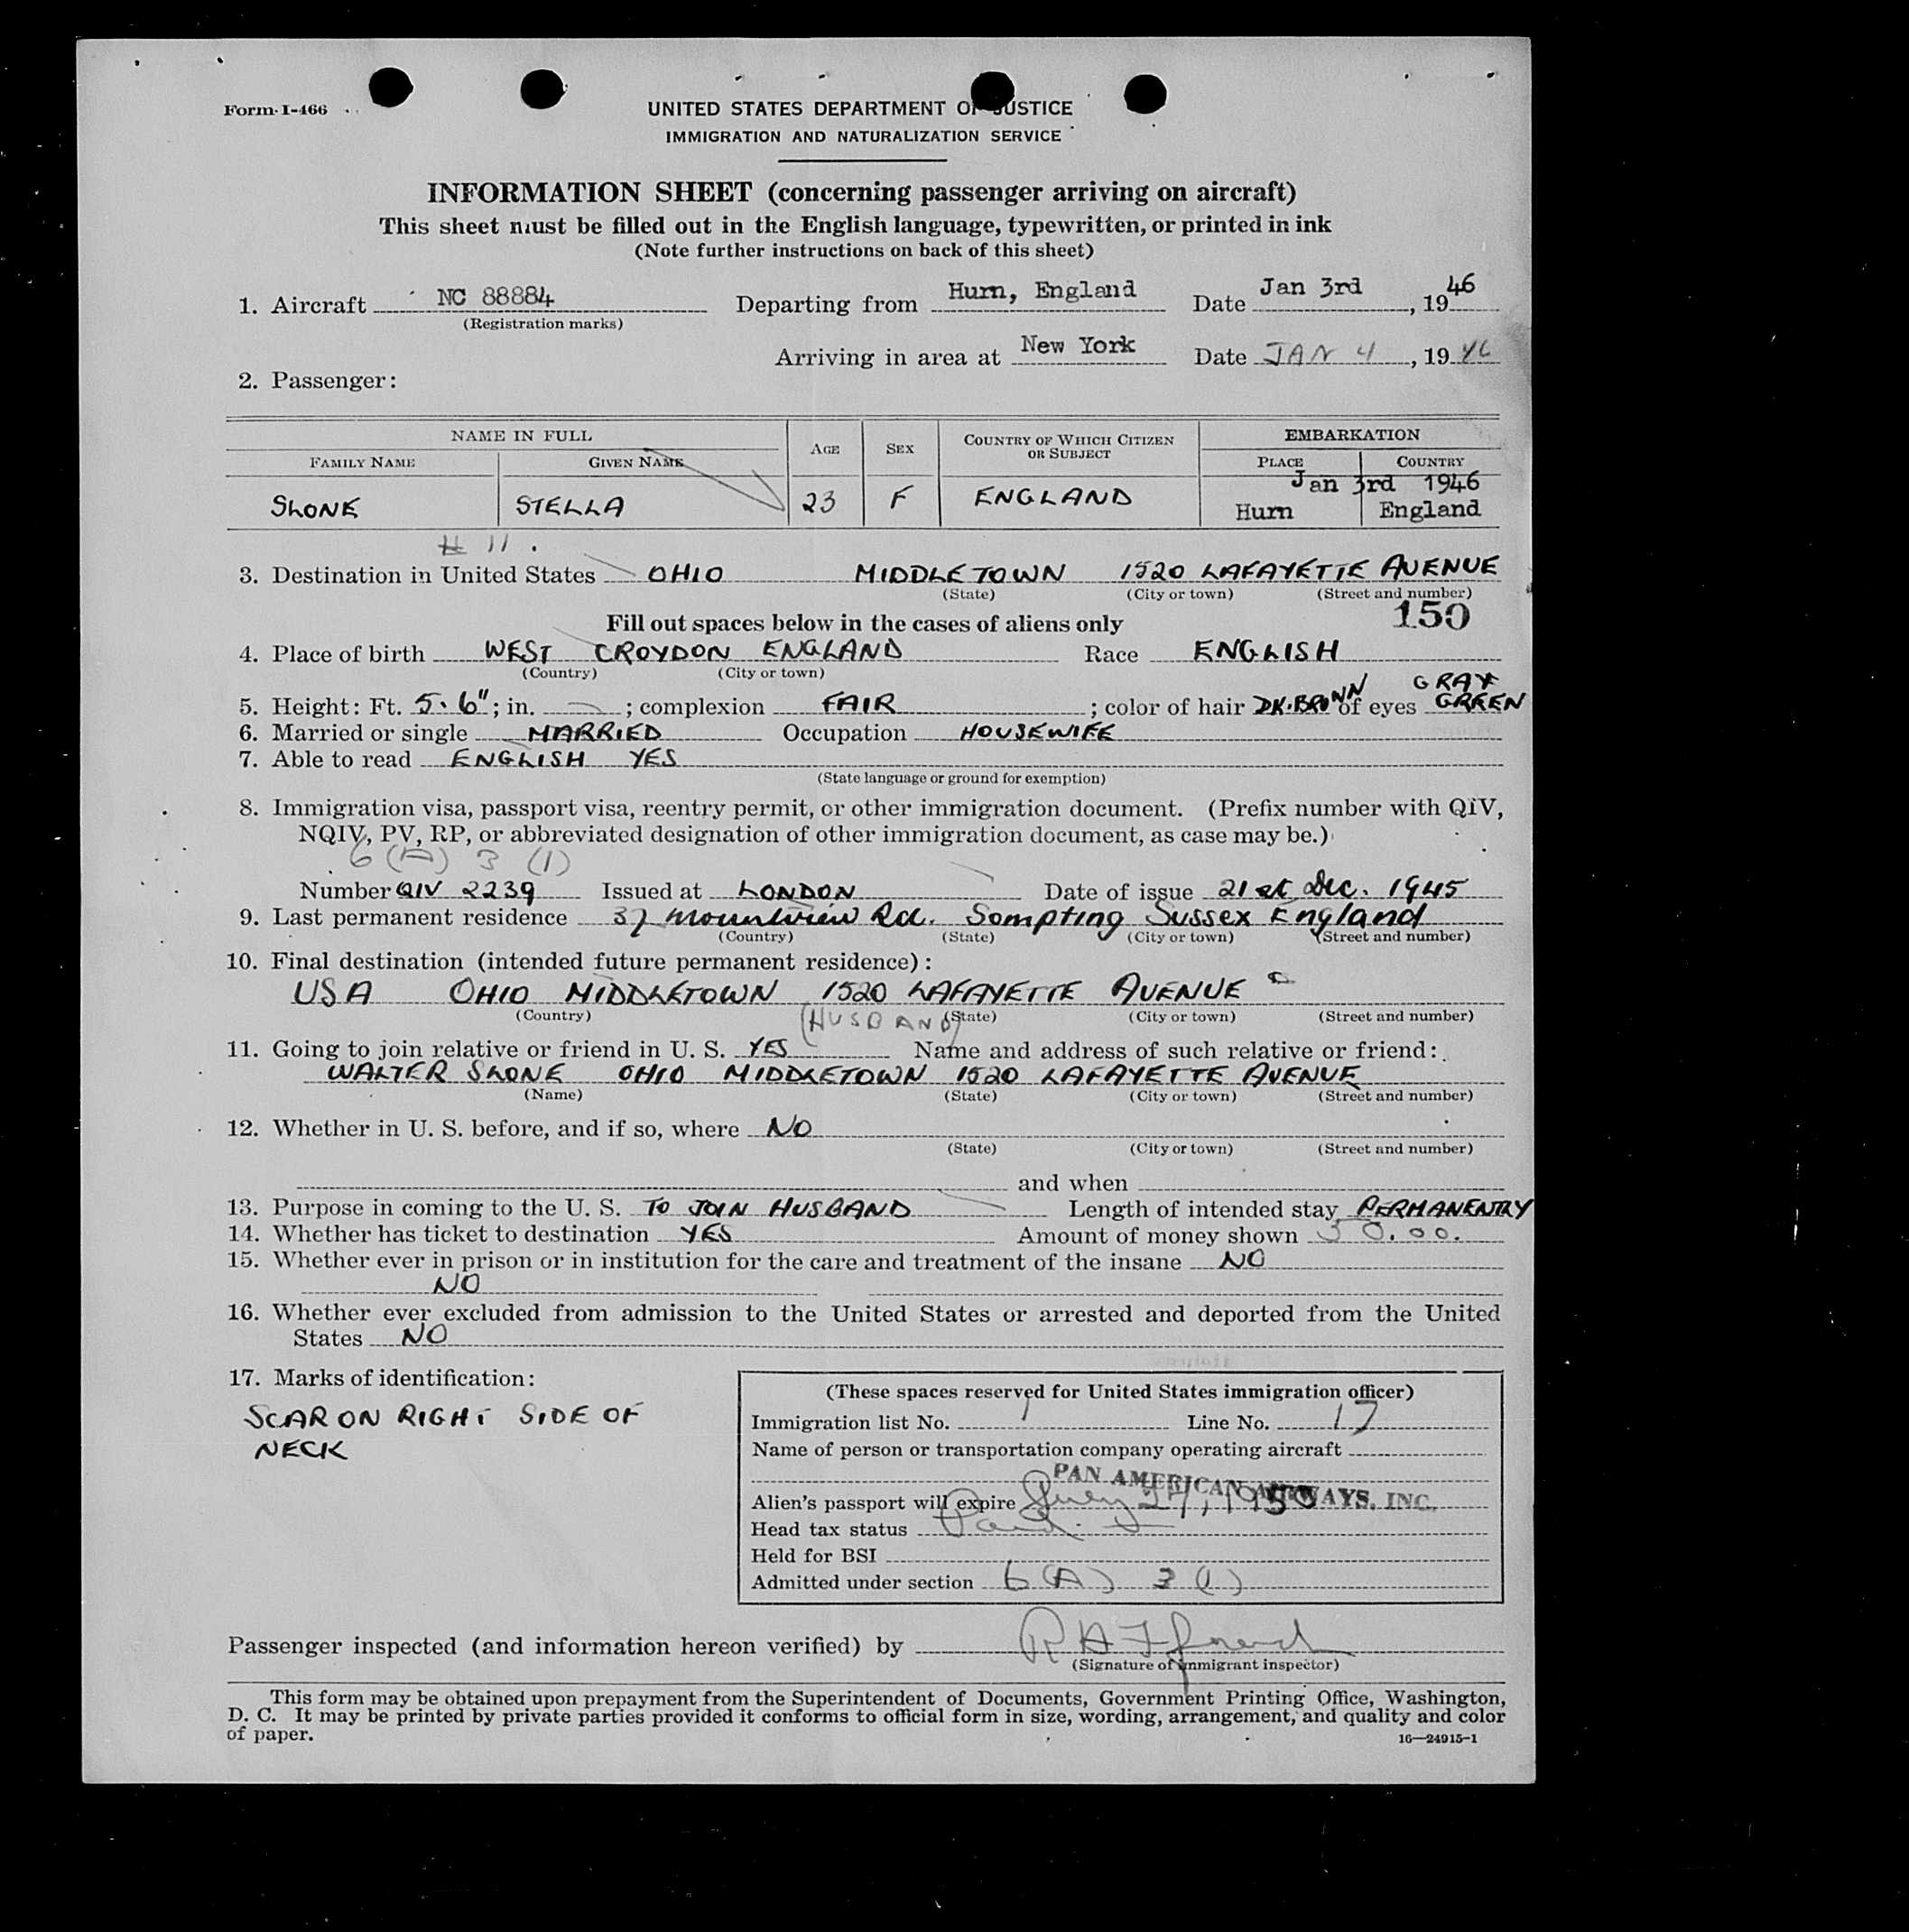 Form I-466
UNITED STATES DEPARTMENT OF JUSTICE
IMMIGRATION AND NATURALIZATION SERVICE
INFORMATION SHEET (concerning passenger arriving on aircraft)
This sheet must be filled out in the English language, typewritten, or printed in ink
(Note further instructions on back of this sheet)
1. Aircraft NC 88884 Departing from Hurn, England Date Jan 3rd, 1946
(Registration marks)
Arriving in area at New York Date JAN 4, 1946
2. Passenger:
NAME IN FULL AGE SEX COUNTRY OF WHICH CITIZEN OR SUBJECT EMBARKATION
FAMILY NAME GIVEN NAME PLACE COUNTRY
Jan 3rd 1946
SLONE STELLA 23 F ENGLAND Hurn England
# 11.
3. Destination in United States OHIO MIDDLETOWN 1520 LAFAYETTE AVENUE
(State) (City or town) (Street and number)
150
Fill out spaces below in the cases of aliens only
4. Place of birth WEST CROYDON ENGLAND Race ENGLISH
(Country) (City or town)
GRAY
5. Height: Ft. 5. 6"; in. ; complexion FAIR ; color of hair DK.BROWN of eyes GREEN
6. Married or single MARRIED Occupation HOUSEWIFE
7. Able to read ENGLISH YES
(State language or ground for exemption)
8. Immigration visa, passport visa, reentry permit, or other immigration document. (Prefix number with QIV,
NQIV, PV, RP, or abbreviated designation of other immigration document, as case may be.)
6 (A) 3 (1)
Number QIV 2239 Issued at LONDON Date of issue 21st Dec. 1945
9. Last permanent residence 37 Mountview Rd. Sompting Sussex England
(Country) (State) (City or town) (Street and number)
10. Final destination (intended future permanent residence):
USA OHIO MIDDLETOWN 1520 LAFAYETTE AVENUE
(Country) (State) (City or town) (Street and number)
(HUSBAND)
11. Going to join relative or friend in U. S. YES Name and address of such relative or friend:
WALTER SLONE OHIO MIDDLETOWN 1520 LAFAYETTE AVENUE
(Name) (State) (City or town) (Street and number)
12. Whether in U. S. before, and if so, where NO
(State) (City or town) (Street and number)
and when
13. Purpose in coming to the U. S. TO JOIN HUSBAND Length of intended stay PERMANENTRY
14. Whether has ticket to destination YES Amount of money shown 30.00.
15. Whether ever in prison or in institution for the care and treatment of the insane NO
NO
16. Whether ever excluded from admission to the United States or arrested and deported from the United
States NO
17. Marks of identification:
SCAR ON RIGHT SIDE OF
NECK
(These spaces reserved for United States immigration officer)
Immigration list No. 1 Line No. 17
Name of person or transportation company operating aircraft
PAN AMERICAN AIRWAYS, INC.
Alien's passport will expire 1950
Head tax status Paid
Held for BSI
Admitted under section 6(A) 3(1)
Passenger inspected (and information hereon verified) by
(Signature of immigrant inspector)
This form may be obtained upon prepayment from the Superintendent of Documents, Government Printing Office, Washington,
D. C. It may be printed by private parties provided it conforms to official form in size, wording, arrangement, and quality and color
of paper.
16—24915-1